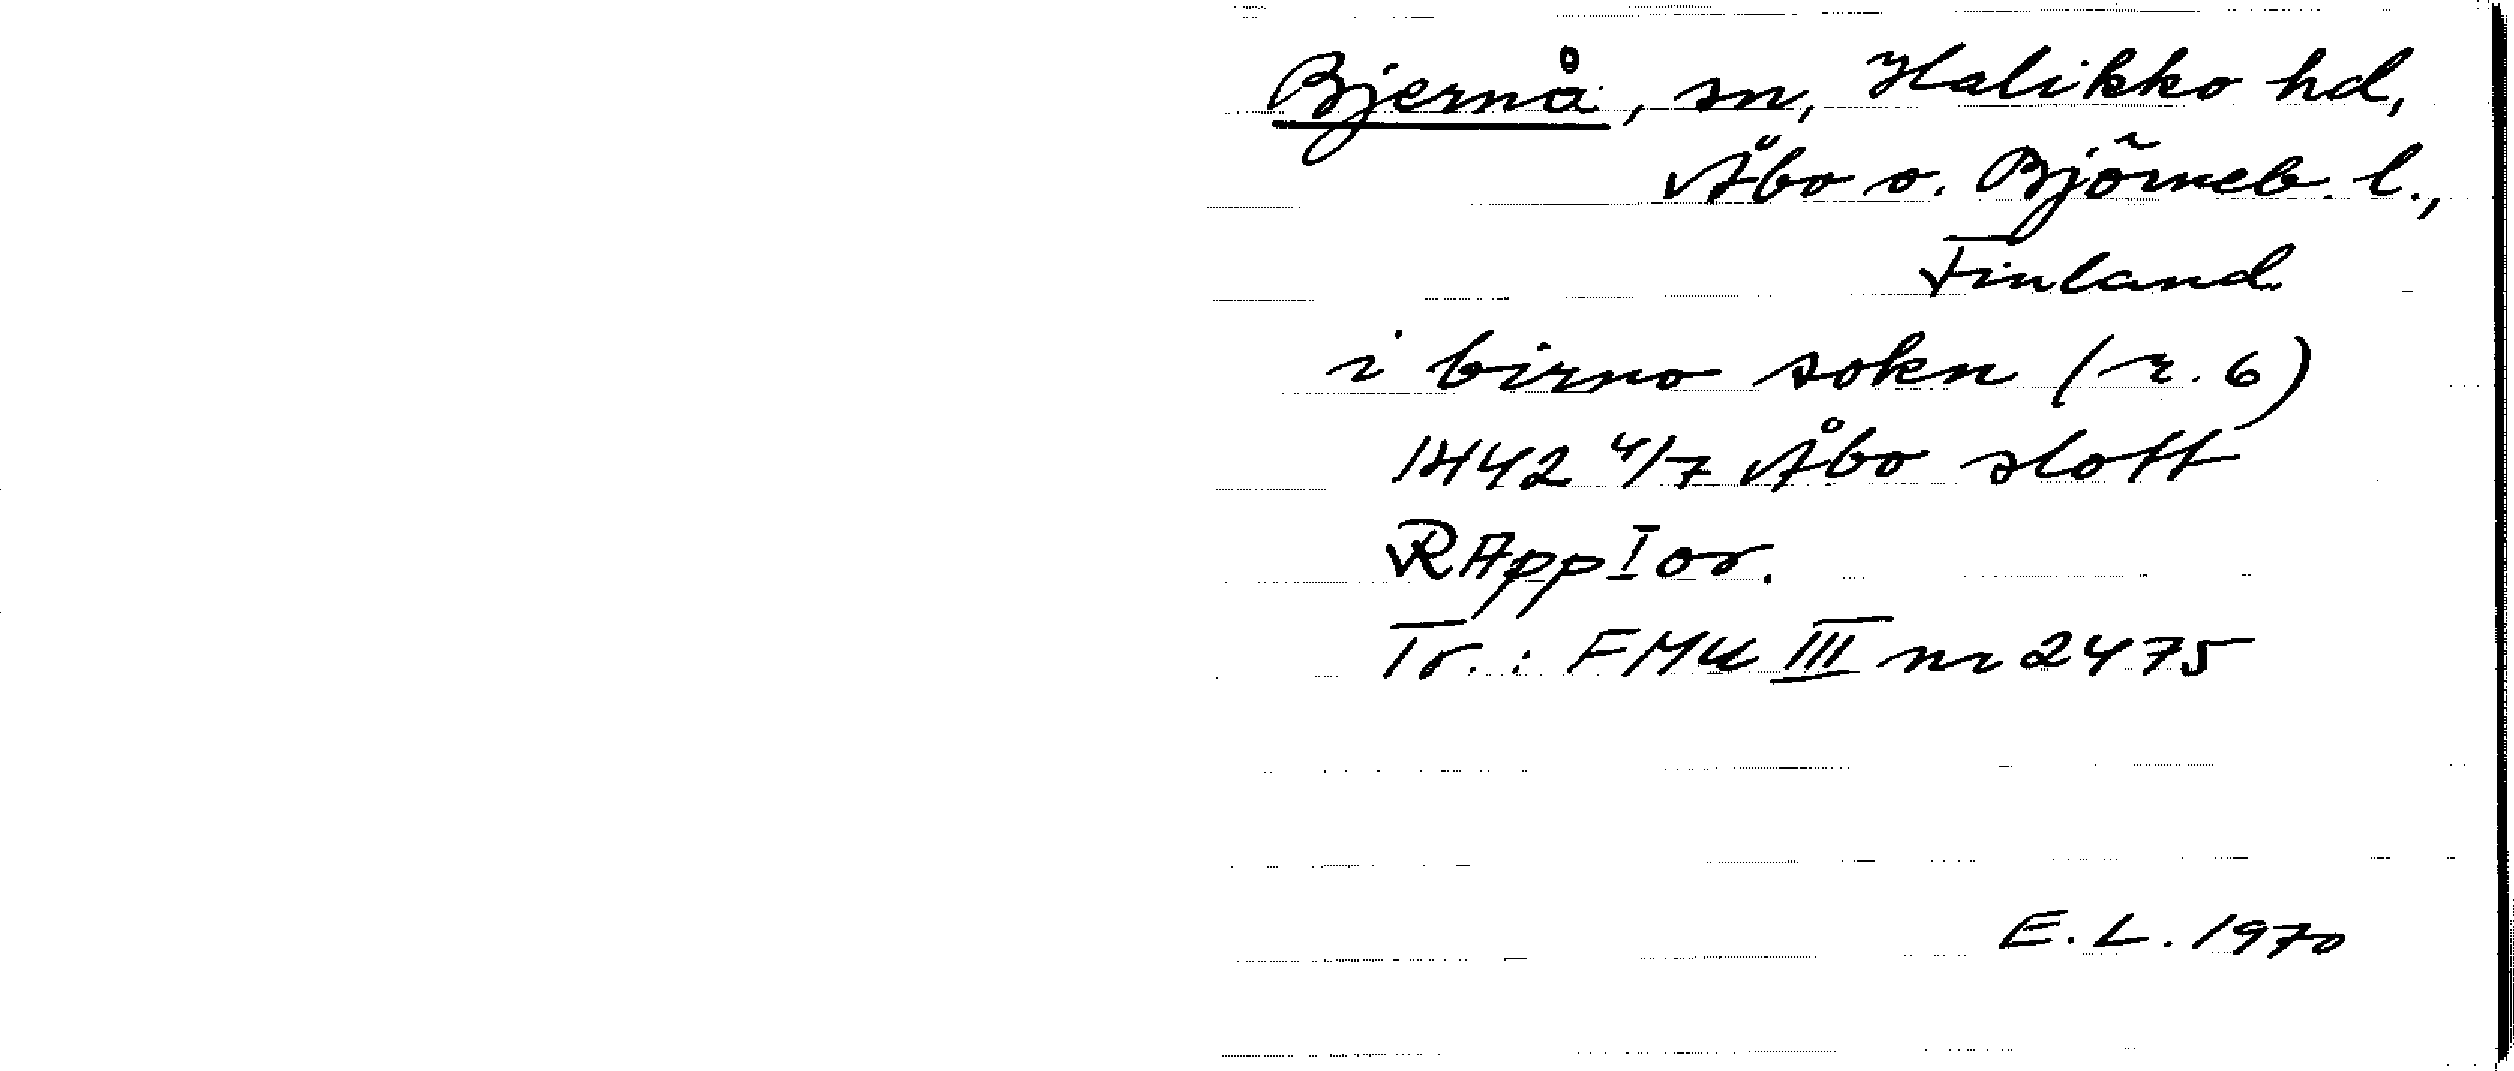 Bjernå, sn, Halikko hd,
Åbo o. Björneb. l.,
Finland.
i birno sokn (r. 6)
1442 4/7 Åbo slott
RAppI or.
Tr.: FMU III nr 2475
E. L. 1970